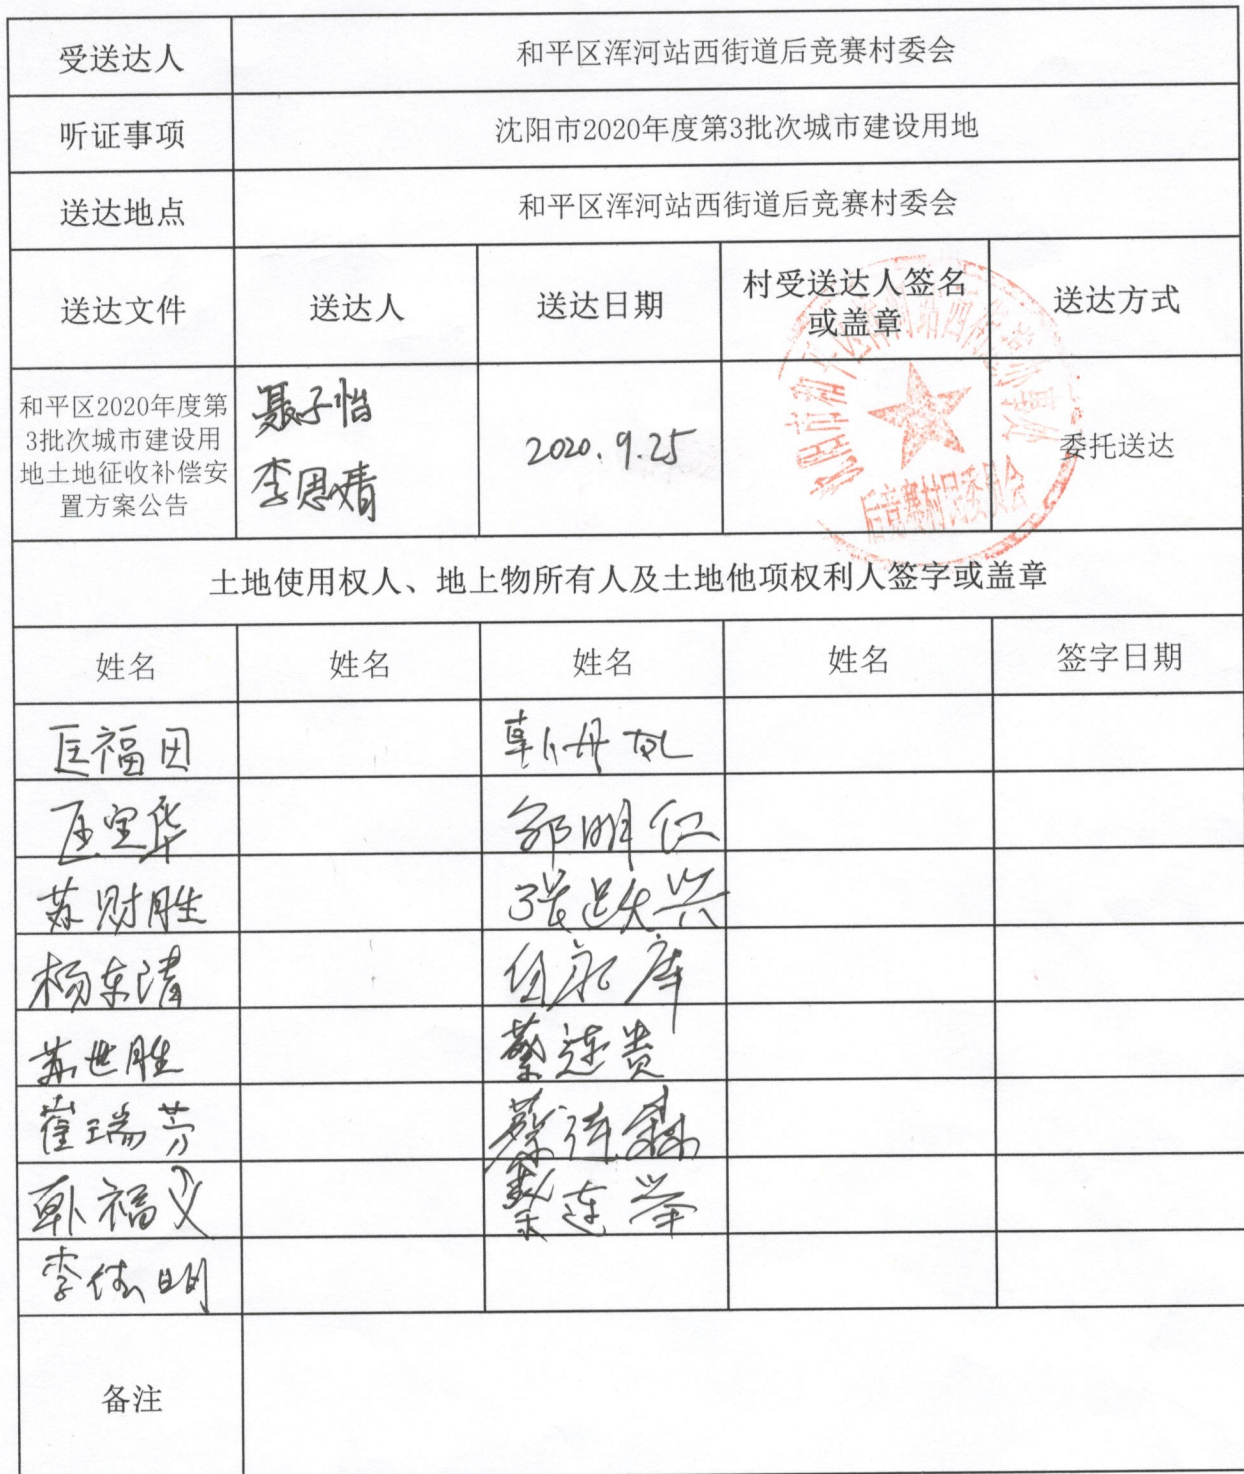 受送达人 和平区浑河站西街道后竞赛村委会
听证事项 沈阳市2020年度第3批次城市建设用地
送达地点 和平区浑河站西街道后竞赛村委会
送达文件 送达人 送达日期 村受送达人签名或盖章 送达方式
和平区2020年度第
3批次城市建设用
地土地征收补偿安
置方案公告
聂子怡
李思婧
2020.9.25
后竞赛村民委员会
委托送达
土地使用权人、地上物所有人及土地他项权利人签字或盖章
姓名 姓名 姓名 姓名 签字日期
匡福田 韩丹凤
匡宝华 邹明仁
苏财胜 张跃兴
杨东清
苏世胜 蔡连贵
崔瑞芳 蔡连森
韩福义 蔡连举
备注